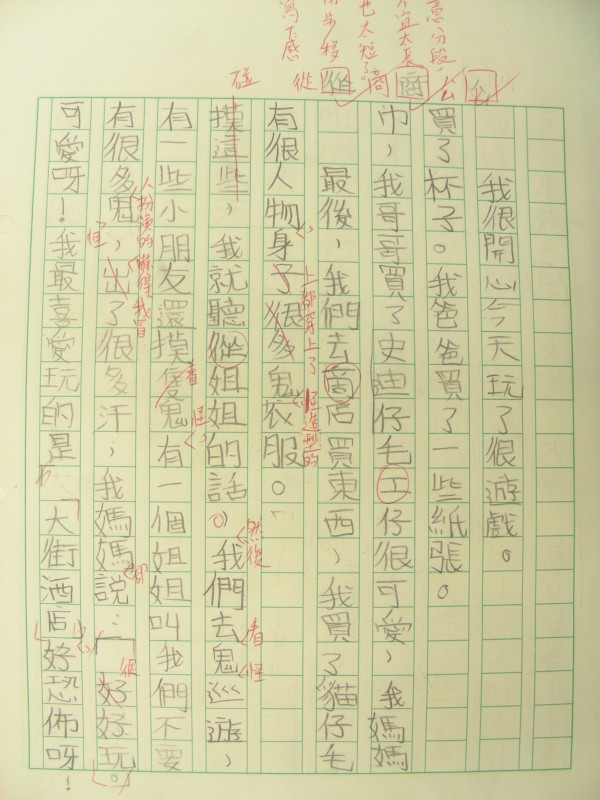 可愛呀！我最喜愛玩的是「大街酒店」好恐佈呀！
有很多鬼，出了很多汗，我媽媽說：「好好玩。
人扮演的嚇得我冒
怪
都
很
有一些小朋友還摸隻鬼有一個姐姐叫我們不要
看
怪
摸這些，我就聽從姐姐的話。我們去鬼巡遊，
碰
然後
看
怪
有很人物身子很多鬼衣服。
上都穿上了
怪造型的
最後，我們去商店買東西，我買了貓仔毛
巾，我哥哥買了史迪仔毛工仔很可愛，我媽媽
買了杯子。我爸爸買了一些紙張。
我很開心今天玩了很遊戲。
從 從 商 商 公 公
寫下感
步移
也太短了
不宜太長
意分段，